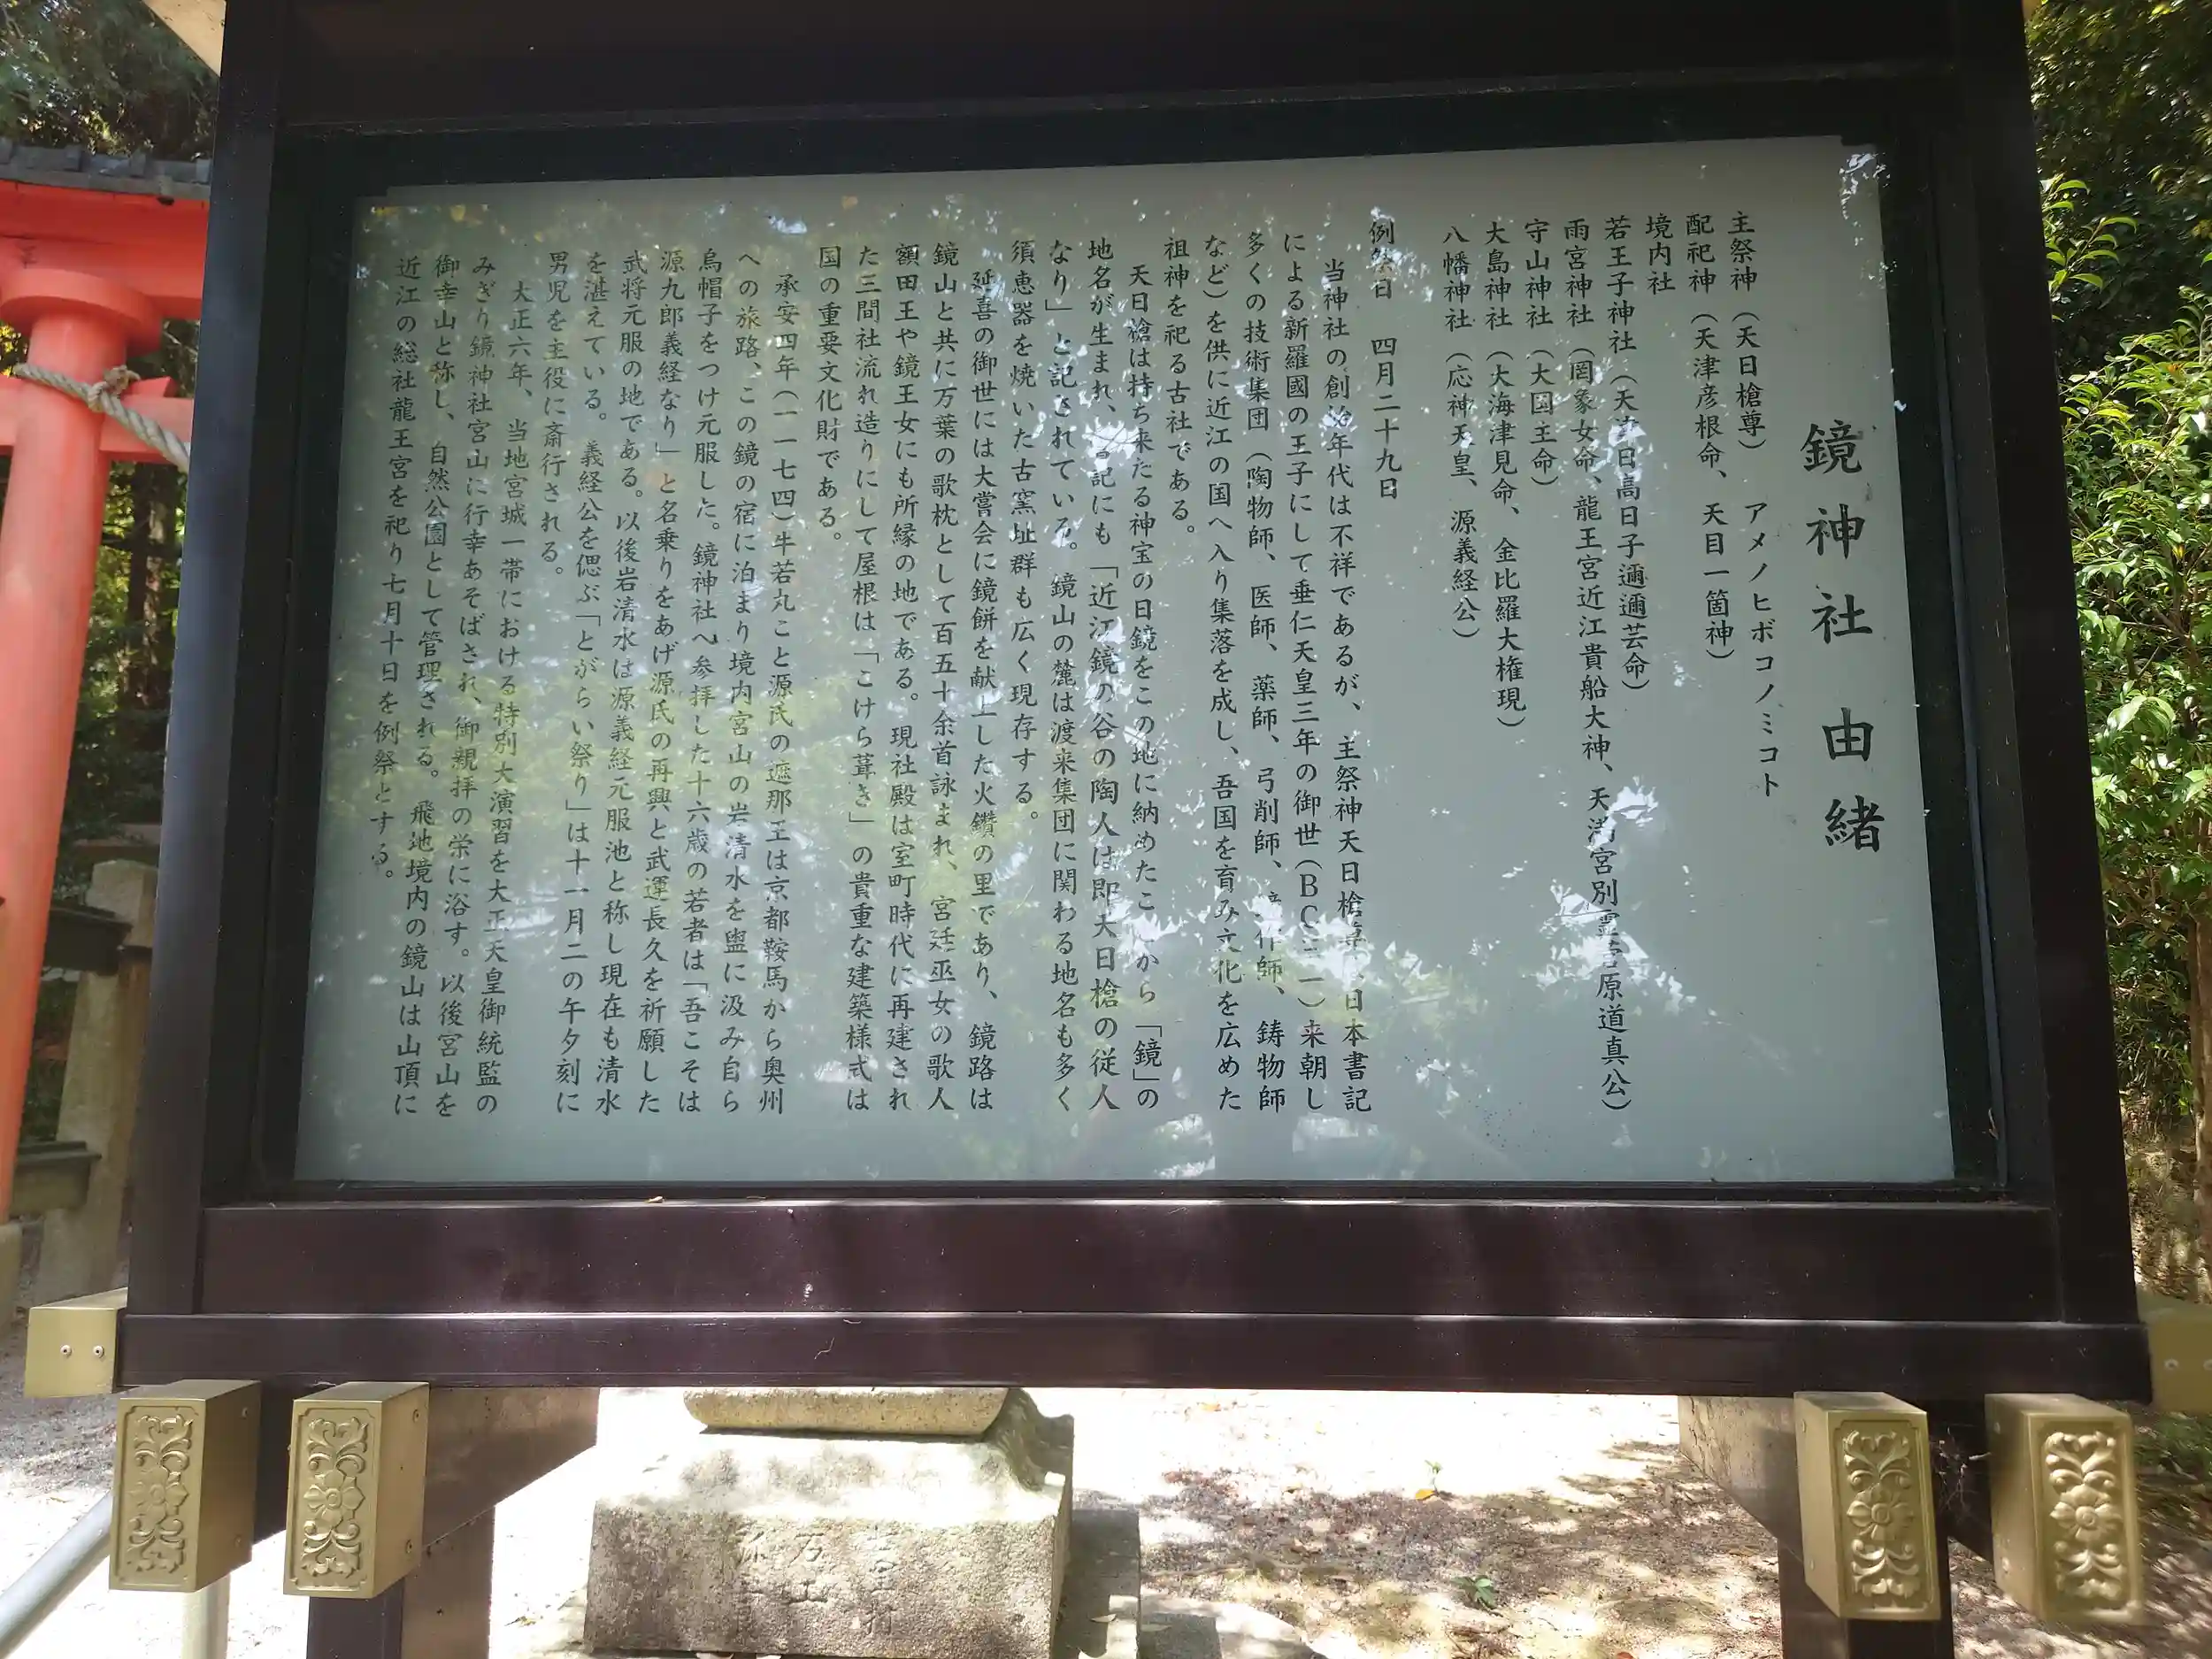 鏡神社由緒
主祭神（天日槍尊）　アメノヒボコノミコト
配祀神（天津彦根命、天目一箇神）
境内社
若王子神社（天津日高日子邇邇芸命）
雨宮神社（罔象女命、龍王宮近江貴船大神、天満宮別霊菅原道真公）
守山神社（大国主命）
大島神社（大海津見命、金比羅大権現）
八幡神社（応神天皇、源義経公）
例祭日　四月二十九日
当神社の創始年代は不祥であるが、主祭神天日槍尊は日本書記
による新羅國の王子にして垂仁天皇三年の御世（BC三一）来朝し
多くの技術集団（陶物師、医師、薬師、弓削師、作師、鋳物師
など）を供に近江の国へ入り集落を成し、吾国を育み文化を広めた
祖神を祀る古社である。
天日槍は持ち来たる神宝の日鏡をこの地に納めたことから「鏡」の
地名が生まれ、記にも「近江鏡の谷の陶人は即天日槍の従人
なり」と記されている。鏡山の麓は渡来集団に関わる地名も多く
須恵器を焼いた古窯址群も広く現存する。
延喜の御世には大嘗会に鏡餅を献上した火鑽の里であり、鏡路は
鏡山と共に万葉の歌枕として百五十余首詠まれ、宮廷巫女の歌人
額田王や鏡王女にも所縁の地である。現社殿は室町時代に再建され
た三間社流れ造りにして屋根は「こけら葺き」の貴重な建築様式は
国の重要文化財である。
承安四年（一一七四）牛若丸こと源氏の遮那王は京都鞍馬から奥州
への旅路、この鏡の宿に泊まり境内宮山の岩清水を盥に汲み自ら
烏帽子をつけ元服した。鏡神社へ参拝した十六歳の若者は「吾こそは
源九郎義経なり」と名乗りをあげ源氏の再興と武運長久を祈願した
武将元服の地である。以後岩清水は源義経元服池と称し現在も清水
を湛えている。義経公を偲ぶ「とがらい祭り」は十一月二の午夕刻に
男児を主役に斎行される。
大正六年、当地宮城一帯における特別大演習を大正天皇御統監の
みぎり鏡神社宮山に行幸あそばされ、御親拝の栄に浴す。以後宮山を
御幸山と称し、自然公園として管理される。飛地境内の鏡山は山頂に
近江の総社龍王宮を祀り七月十日を例祭とする。